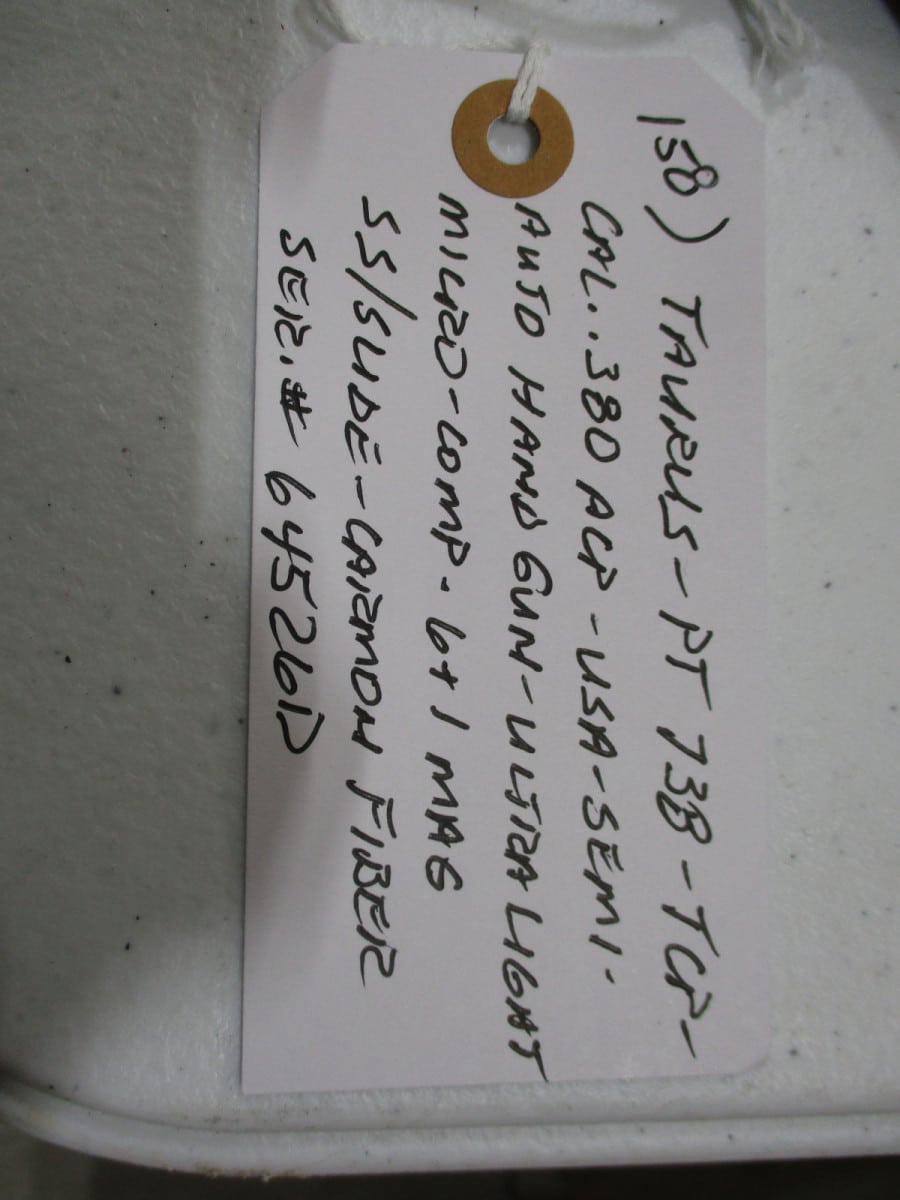 158) TAURUS-PT 738-TCP-
CAL..380 ACP-USA-SEMI-
AUTO HANDGUN-ULTRA LIGHT
MICRO-COMP. 6+1 MAG
SS/SLIDE-CARMON FIBER
SER.# 64526D